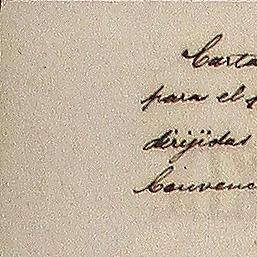 Carta
para el
dirijidas
Convenc